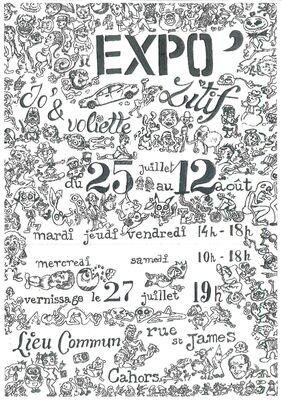 EXPO'
Jo' & Zutif
voliette
juillet
du 25 au 12 août
mardi jeudi vendredi 14h-18h
mercredi samedi 10h-18h
vernissage le 27 juillet 19h
Lieu Commun rue St James
Cahors